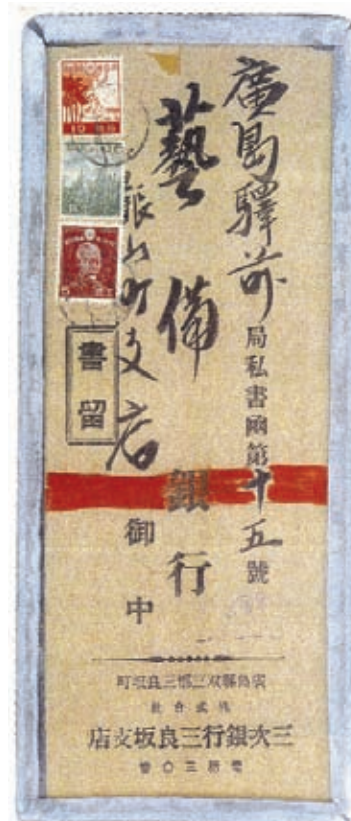 廣島驛前局私書凾第十五號
藝備銀行
銀山町支店
御中
書留
廣島縣双三郡三良坂町
株式合社
三次銀行三良坂支店
電話三〇番